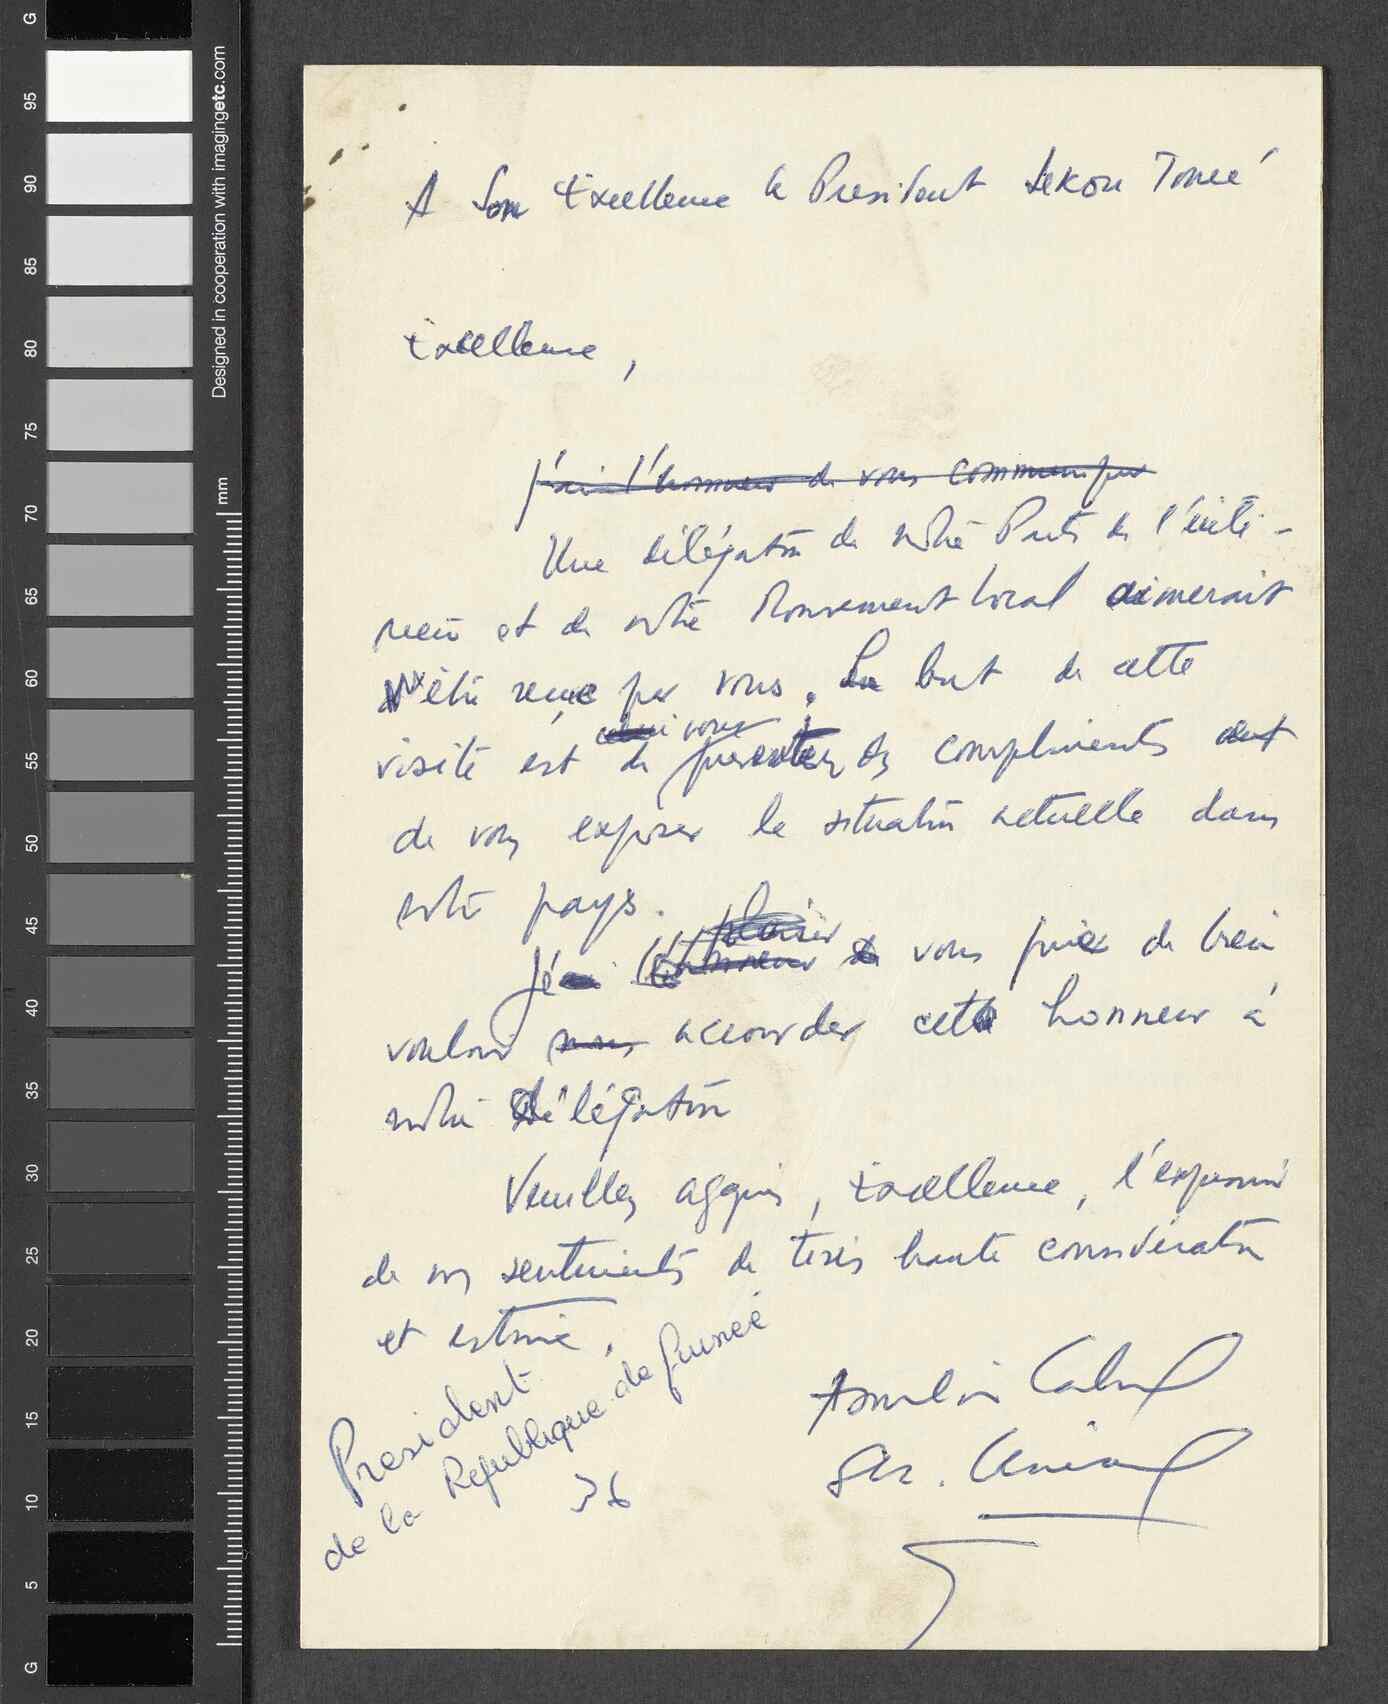 A Son Excellence le President Sekou Touré
Excellence,
j'ai l'honneur de vous communiquer
Une délégation de notre Parti de l'inté-
rieur et de notre Mouvement local aimerait
être reçue par vous. Le but de cette
visite est de vous présenter des compliments et
de vous exposer la situation actuelle dans
notre pays.
plaisir
Je vous prie de bien
vouloir nous accourder cette honneur à
notre délégation
Veuillez agréer, Excellence, l'expression
de nos sentiments de très haute considération
et estime.
Amilcar Cabral
Sec. Général
President
de la Republique de Guinée
36
G
95
90
85
80
75
70
65
60
55
50
45
40
35
30
25
20
15
10
5
G
Designed in cooperation with imagingetc.com
mm